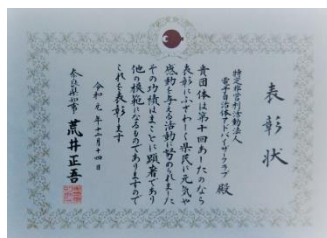 表彰状
特定非営利活動法人
電子自治体アドバイザークラブ 殿
貴団体は第十回あしたのなら
表彰にふさわしく県民に元気や
感動を与える活動に努められました
その功績はまことに顕著であり
他の模範になるものでありますので
これを表彰します
令和元年十二月十四日
奈良県知事 荒井正吾